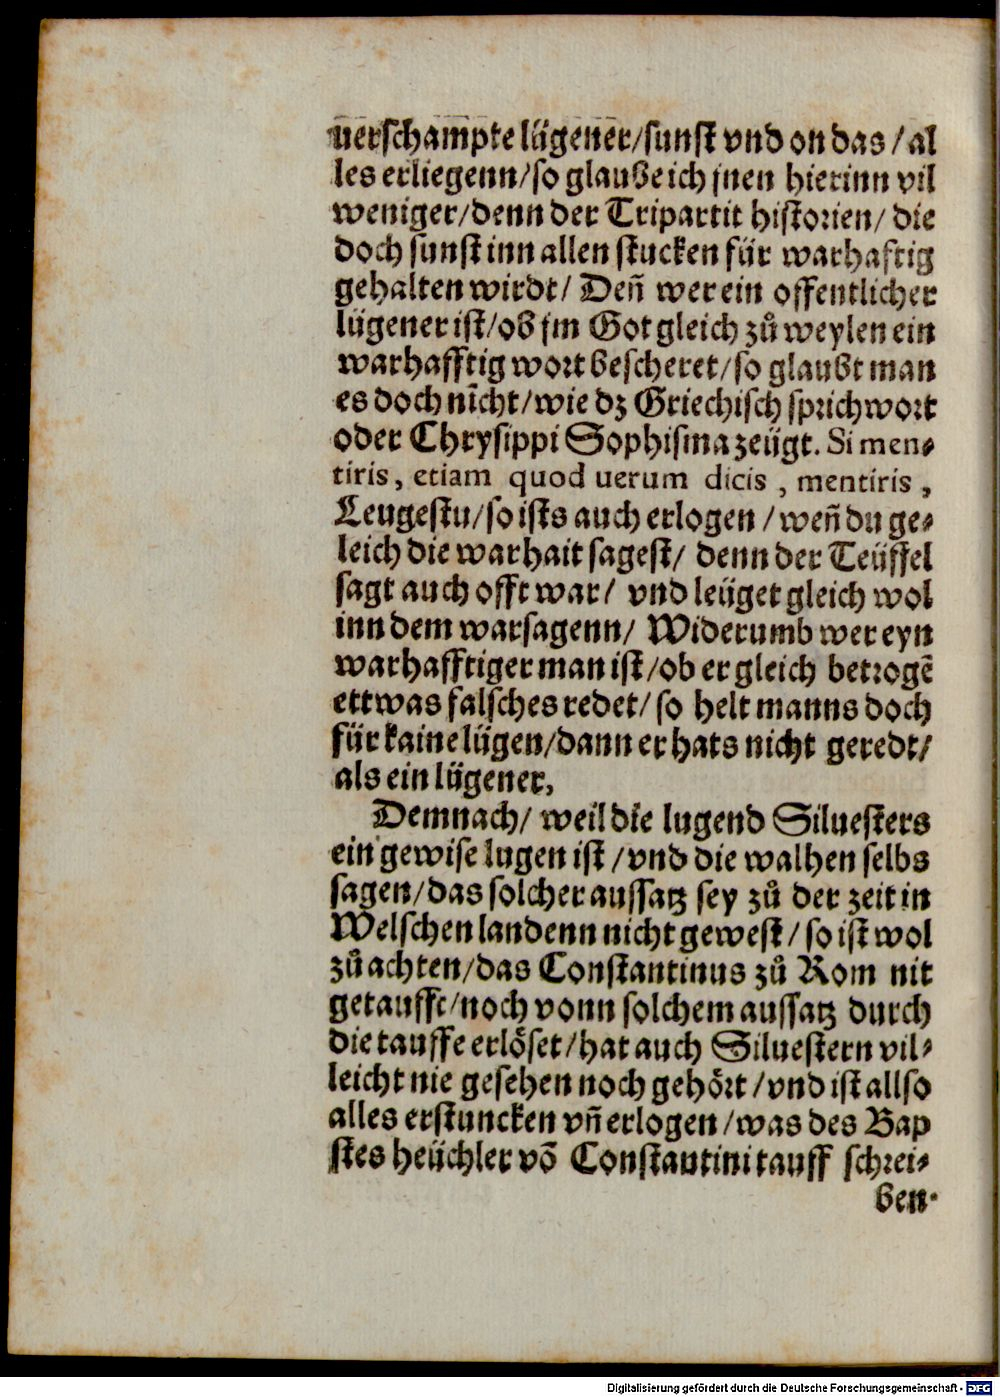 uerschampte lügener/sunst vnd on das/al
les erliegenn/so glaube ich jnen hierinn vil
weniger/denn der Tripartit historien/ die
doch sunst inn allen stucken für warhafftig
gehalten wirdt/ Deñ wer ein offentlicher
lügener ist/ob jm Got gleich zů weylen ein
warhafftig wort bescheret/so glaubt man
es doch nicht/wie dz Griechisch sprichwort
oder Chrysippi Sophisma zeügt. Si men⸗
tiris, etiam quod uerum dicis, mentiris,
Leugestu/so ists auch erlogen/weñ du ge⸗
leich die warhait sagest/ denn der Teüffel
sagt auch offt war/ vnd leüget gleich wol
inn dem warsagenn/ Widerumb wer eyn
warhafftiger man ist/ob er gleich betrogẽ
ettwas falsches redet/so helt manns doch
für kaine lügen/dann er hats nicht geredt/
als ein lügener,
Demnach/ weil die lugend Siluesters
ein gewise lugen ist/vnd die walhen selbs
sagen/das solcher aussatz sey zů der zeit in
Welschen landenn nicht gewest/so ist wol
zů achten/das Constantinus zů Rom nit
getaufft/noch vonn solchem aussatz durch
die tauffe erlöset/hat auch Siluestern vil⸗
leicht nie gesehen noch gehört/vnd ist allso
alles erstuncken vñ erlogen/was des Bap
stes heüchler võ Constantini tauff schrei⸗
ben⸗
Digitalisierung gefördert durch die Deutsche Forschungsgemeinschaft - DFG